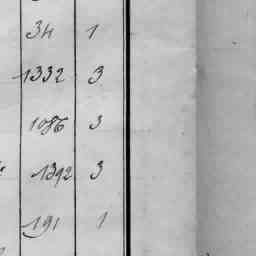 34 1
1332 3
1086 3
1392 3
191 1